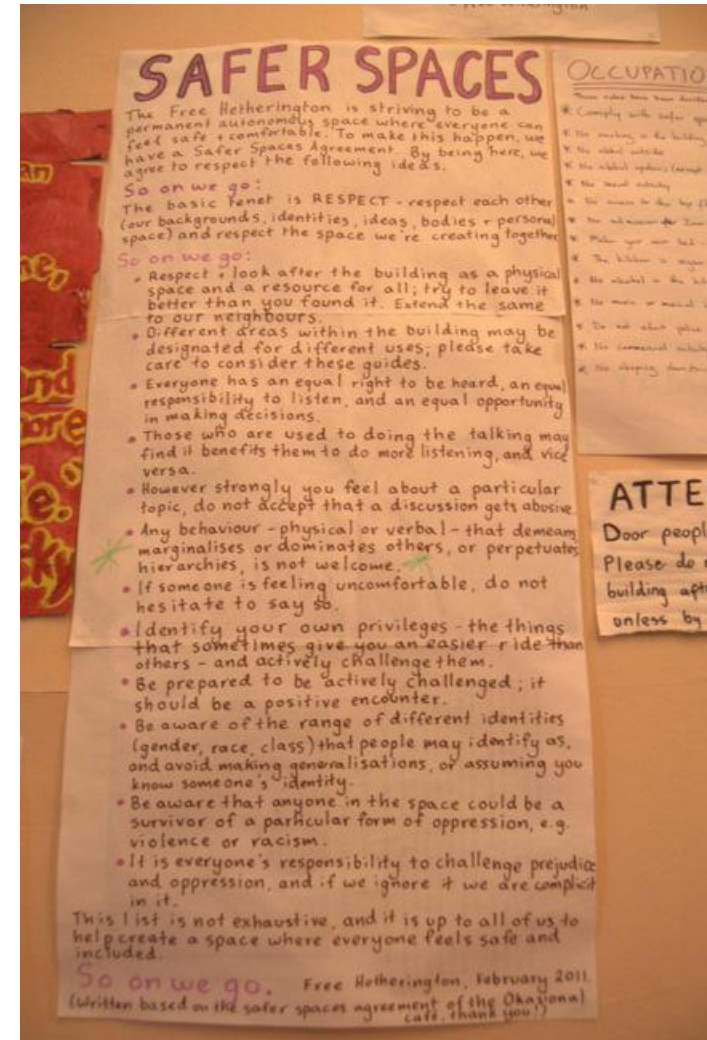 SAFER SPACES
The Free Hetherington is striving to be a
permanent autonomous space where everyone can
feel safe + comfortable. To make this happen, we
have a Safer Spaces Agreement. By being here, we
agree to respect the following ideas.
So on we go:
The basic tenet is RESPECT - respect each other
(our backgrounds, identities, ideas, bodies + personal
space) and respect the space we're creating together
So on we go:
• Respect + look after the building as a physical
space and a resource for all; try to leave it
better than you found it. Extend the same
to our neighbours.
• Different areas within the building may be
designated for different uses; please take
care to consider these guides.
• Everyone has an equal right to be heard, an equal
responsibility to listen, and an equal opportunity
in making decisions.
• Those who are used to doing the talking may
find it benefits them to do more listening, and vice
versa.
• However strongly you feel about a particular
topic, do not accept that a discussion gets abusive
• Any behaviour - physical or verbal - that demeans,
marginalises or dominates others, or perpetuates
hierarchies, is not welcome.
• If someone is feeling uncomfortable, do not
hesitate to say so.
• Identify your own privileges - the things
that sometimes give you an easier ride than
others - and actively challenge them.
• Be prepared to be actively challenged; it
should be a positive encounter.
• Be aware of the range of different identities
(gender, race, class) that people may identify as,
and avoid making generalisations, or assuming you
know someone's identity.
• Be aware that anyone in the space could be a
survivor of a particular form of oppression, e.g.
violence or racism.
• It is everyone's responsibility to challenge prejudice
and oppression, and if we ignore it we are complicit
in it.
This list is not exhaustive, and it is up to all of us to
help create a space where everyone feels safe and
included.
So on we go. Free Hetherington, February 2011.
(Written based on the safer spaces agreement of the Okasional
café, thank you!)
OCCUPATIO
* Comply with safer
* No smoking in the building
* Make your own bed
* The kitchen is
* No alcohol in the
* No music or
* Do not
* No commercial
* No sleeping
ATTE
Door peopl
Please do
building aft
unless by